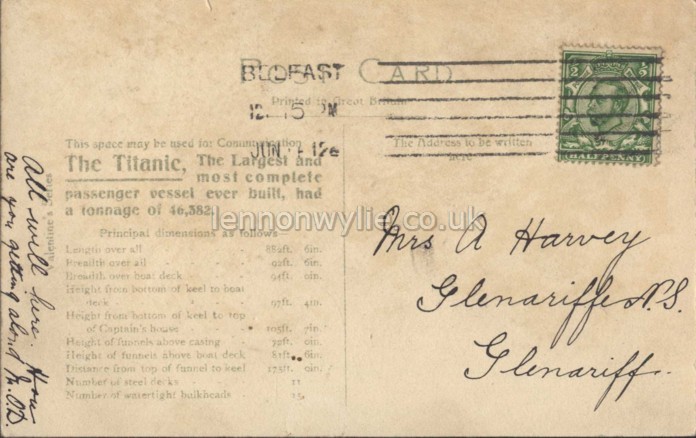 POST CARD
Printed in Great Britain
BELFAST
12 15 PM
JUN 12
This space may be used for Communication
The Address to be written
here
The Titanic, The Largest and
most complete
passenger vessel ever built, had
a tonnage of 46,382
Principal dimensions as follows—
Length over all - - - 882ft. 6in.
Breadth over all - - - 92ft. 6in.
Breadth over boat deck - - 94ft. 0in.
Height from bottom of keel to boat
deck - - - - 97ft. 4in.
Height from bottom of keel to top
of Captain's house - - 105ft. 7in.
Height of funnels above casing - 72ft. 0in.
Height of funnels above boat deck 81ft. 6in.
Distance from top of funnel to keel 175ft. 0in.
Number of steel decks - - 11
Number of watertight bulkheads - 15
Valentine's Series
All well here. How
are you getting along M.O.D.
Mrs A Harvey
Glenariffe N.S.
Glenariff.
HALFPENNY
1/2
1/2
lennonwylie.co.uk